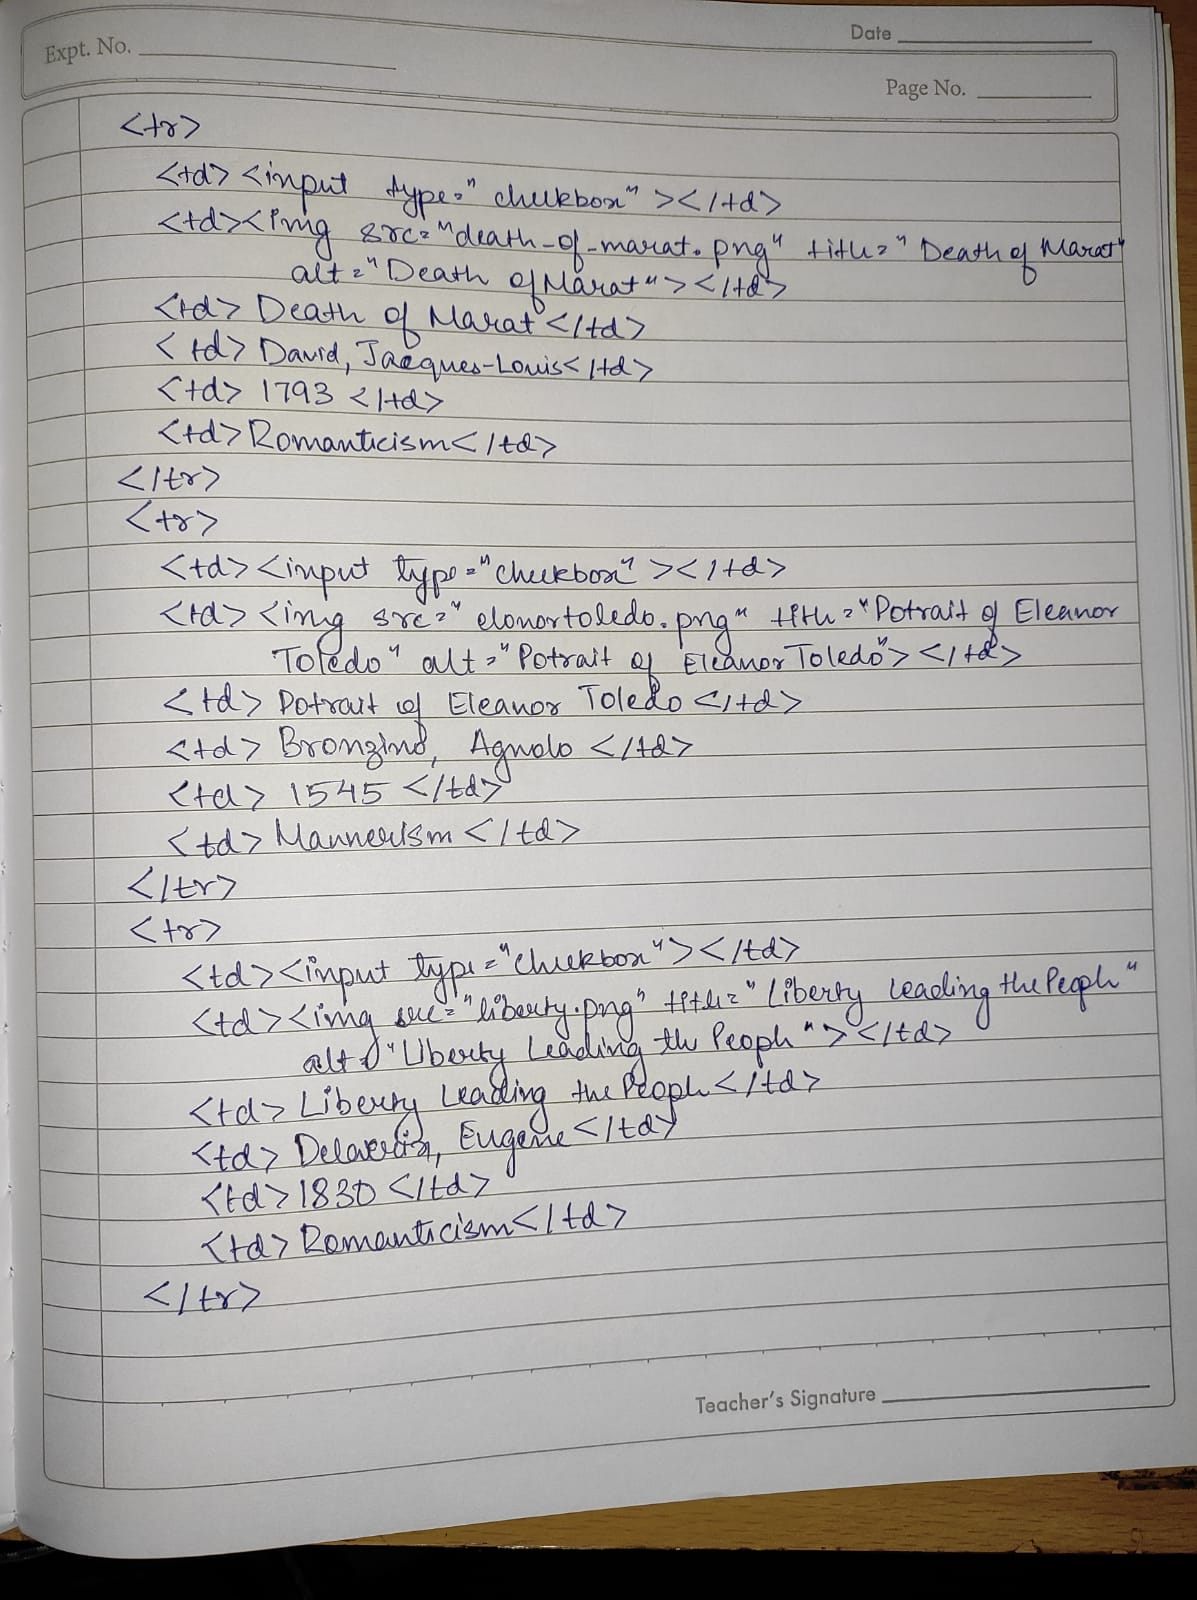 Expt. No.
Date
Page No.
<tr>
<td> <input type="checkbox"></td>
<td><img src="death-of-marat.png" title="Death of Marat"
alt="Death of Marat"></td>
<td> Death of Marat</td>
<td> David, Jacques-Louis</td>
<td> 1793 </td>
<td> Romanticism</td>
</tr>
<tr>
<td> <input type="checkbox"></td>
<td> <img src="elonortoledo.png" title="Potrait of Eleanor
Toledo" alt="Potrait of Eleanor Toledo"> </td>
<td> Potrait of Eleanor Toledo </td>
<td> Bronzino, Agnolo </td>
<td> 1545 </td>
<td> Mannerism </td>
</tr>
<tr>
<td><input type="checkbox"></td>
<td><img src="liberty.png" title="Liberty Leading the People"
alt="Liberty Leading the People"></td>
<td> Liberty Leading the People</td>
<td> Eugene</td>
<td> 1830 </td>
<td> Romanticism</td>
</tr>
Teacher's Signature